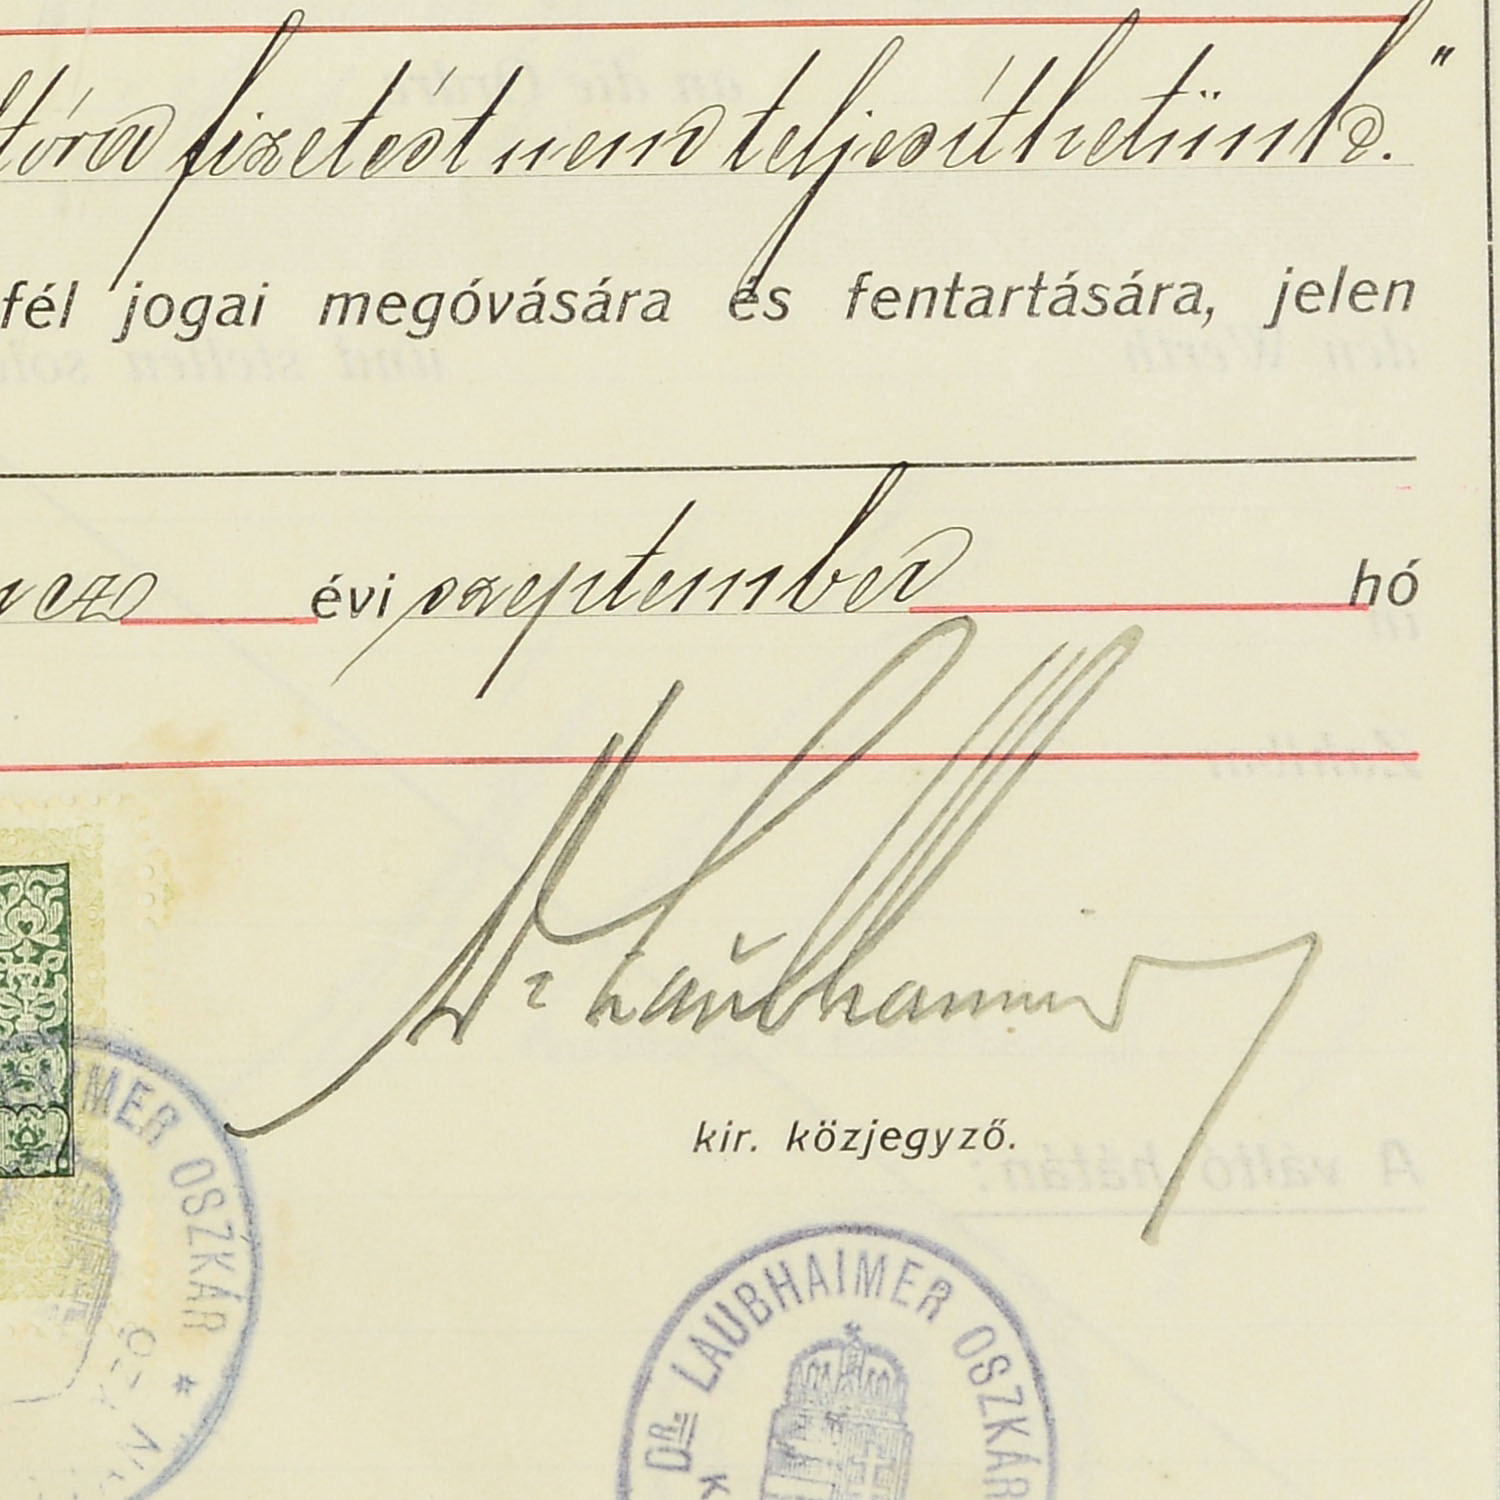 fizetést nem teljesíthetünk."
fél jogai megóvására és fentartására, jelen
évi szeptember hó
Dr Laubhaimer
kir. közjegyző.
MER OSZKÁR *
DR. LAUBHAIMER OSZKÁR
A váltó hátán: